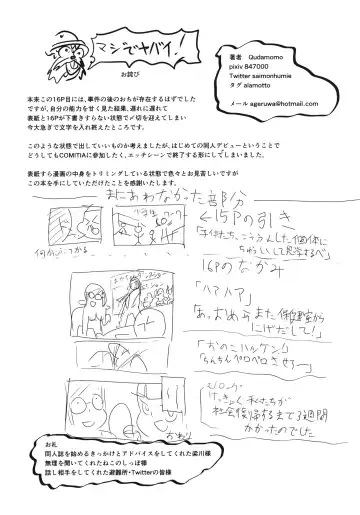 マジでヤバイ！
お詫び
著者　Qudamomo
pixiv 847000
Twitter saimonhumie
タグ alamotto
メール ageruwa@hotmail.com
本来この16P目には、事件の後のおちが存在するはずでした
ですが、自分の能力を甘く見た結果、遅れに遅れて
表紙と16Pが下書きすらない状態で〆切を迎えてしまい
今大急ぎで文字を入れ終えたところです。
このような状態で出していいものか考えましたが、はじめての同人デビューということで
どうしてもCOMITIAに参加したく、エッチシーンで終了する形にしてしまいました。
表紙すら漫画の中身をトリミングしている状態で色々とお見苦しいですが
この本を手にしていただけたことを感謝いたします。
まにあわなかった部分
←15Pの引き
16Pのなかみ
「ハァハァ」
にげだして！」
「ちんちんペロペロさせてー」
社会復帰するまで3週間
かかったのでした
おわり
お礼
同人誌を始めるきっかけとアドバイスをしてくれた梁川様
無理を聞いてくれたねこのしっぽ様
話し相手をしてくれた避難所・Twitterの皆様